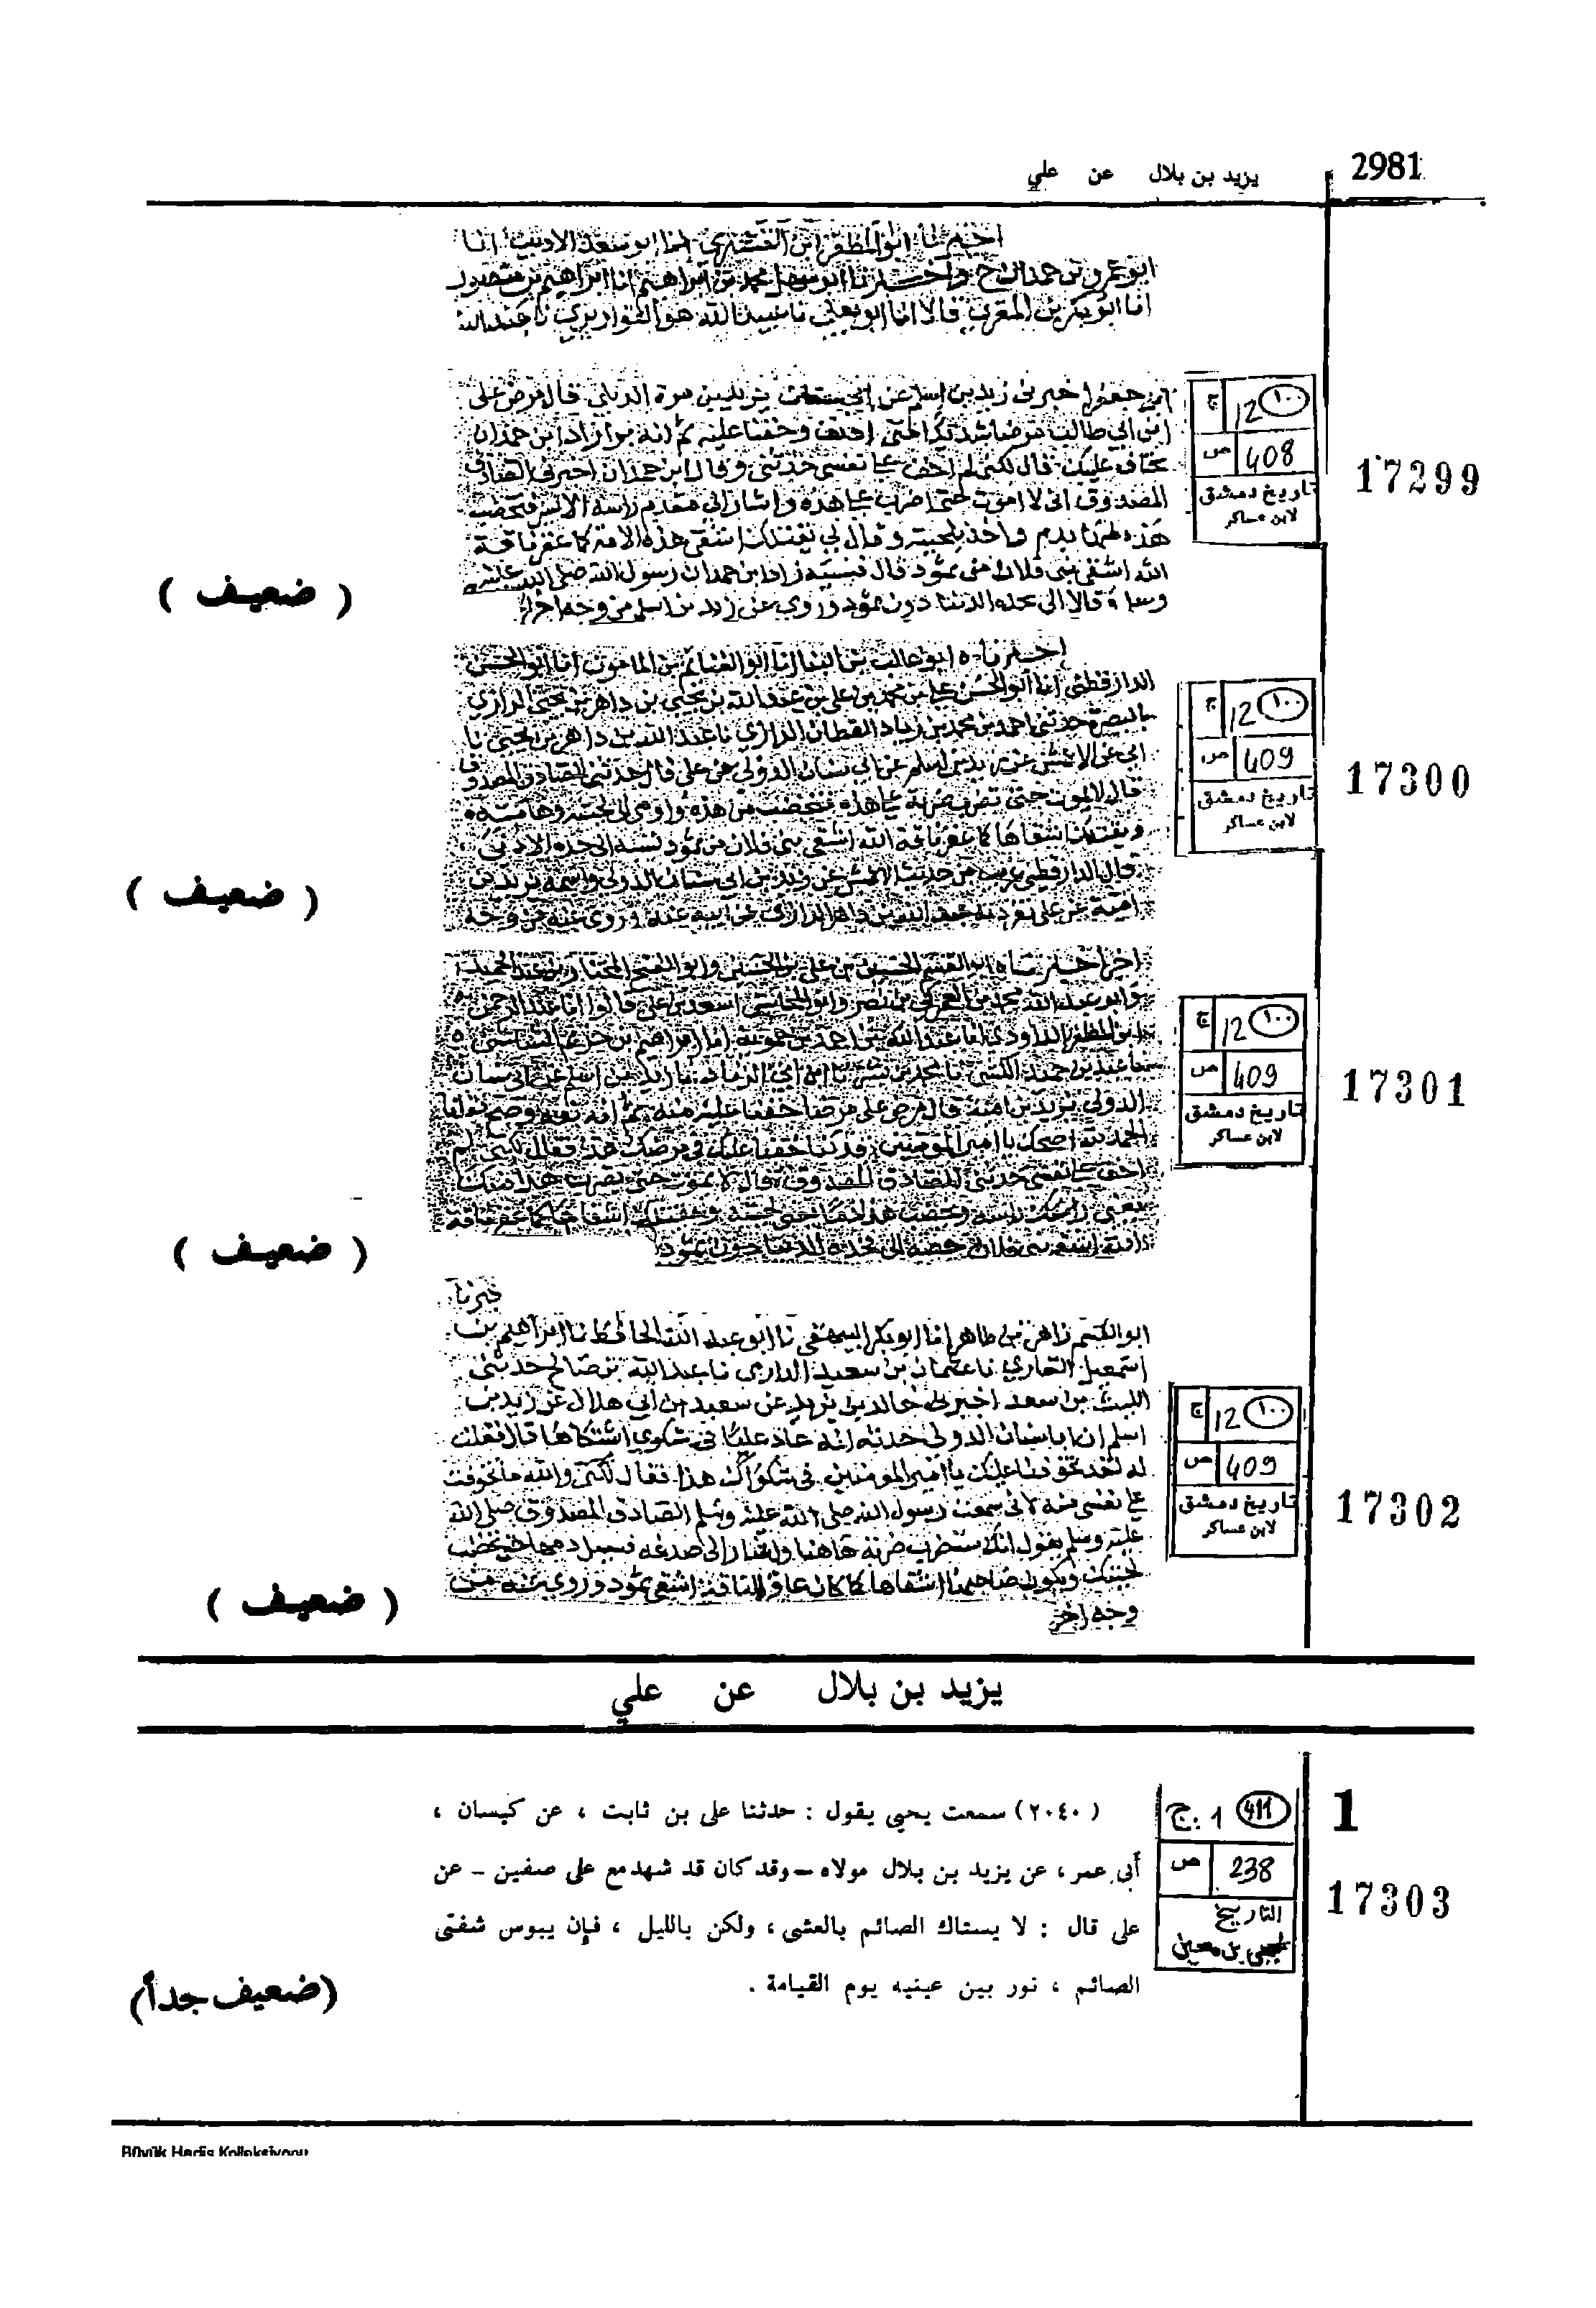 2981
يزيد بن بلال عن علي
اخبرنا ابو المظفر ابن القشيري انا ابو سعد الاديب انا
ابو عمرو بن حمدان ح واخبرنا ابو سهل محمد بن ابراهيم انا ابراهيم بن منصور
انا ابو بكر بن المقرئ قالا انا ابو يعلى نا عبيد الله هو القواريري نا عبد الله
ابن جعفر اخبرني زيد بن اسلم عن ابي سنان يزيد بن مرة الديلي قال مرض علي
ابن ابي طالب مرضا شديدا حتى ادنف وخفنا عليه ثم انه برا زاد ابن حمدان
نخاف عليك قال لكني لم اخف على نفسي حدثني وقال ابن حمدان اخبرني الصادق
المصدوق اني لا اموت حتى اضرب على هذه واشار الى مقدم راسه الايسر فتخضب
هذه منها بدم واخذ بلحيته وقال لي يقتلك اشقى هذه الامة كما عقر ناقة
الله اشقى بني فلان من ثمود قال فنسبه زاد ابن حمدان رسول الله صلى الله عليه
وسلم قالا الى جده الدنيا دون ثمود وروي عن زيد بن اسلم من وجه اخر
ج 12 ١٠٠
ص 408
تاريخ دمشق
لابن عساكر
17299
( ضعيف )
اخبرناه ابو غالب بن البنا انا ابو الغنائم بن المامون انا ابو الحسن
الدارقطني انا ابو الحسن علي بن محمد بن علي بن عبد الله بن يحيى بن داهر بن يحيى الرازي
بالبصرة حدثني احمد بن محمد بن زياد القطان الرازي نا عبد الله بن داهر بن يحيى نا
ابي عن الاعمش عن زيد بن اسلم عن ابي سنان الدولي عن علي قال حدثني الصادق المصدوق
قال لا يموت حتى تضرب ضربة على هذه فتخضب من هذه واومى الى لحيته وهامته
ويقتلك اشقاها كما عقر ناقة الله اشقى بني فلان من ثمود نسبه الى جده الادنى
قال الدارقطني غريب من حديث الاعمش عن زيد بن ابي سنان الدولي واسمه يزيد بن
امية عن علي تفرد به عبد الله بن داهر الرازي عن ابيه عنه وروي عنه من وجه
ج 12 ١٠٠
ص 409
تاريخ دمشق
لابن عساكر
17300
( ضعيف )
اخر اخبرناه ابو القسم الحسين بن علي بن الحسين وابو الفتح المختار بن عبد الحميد
وابو المحاسن اسعد بن علي قالوا انا عبد الرحمن
ابن المظفر الداودي انا عبد الله بن احمد بن حموية انا ابراهيم بن خزيم الشاشي
نا عبد بن حميد الكشي نا محمد بن بشر نا ابن ابي الزناد نا زيد بن اسلم عن ابي سنان
الدولي يزيد بن امية قال مرض علي مرضا خفنا عليه منه ثم انه نقه وصح فقلنا
الحمد لله اصحك يا امير المومنين قد كنا خفنا عليك في مرضك هذا فقال لكني لم
اخف على نفسي حدثني الصادق المصدوق قال لا تموت حتى يضرب هذا منك
يعني راسه وتخضب هذه دما يعني لحيته ويقتلك اشقاها كما عقر ناقة
الله اشقى بني فلان خصه الى فخذه الدنيا دون ثمود
ج 12 ١٠٠
ص 409
تاريخ دمشق
لابن عساكر
17301
( ضعيف )
خبرنا
ابو القسم زاهر بن طاهر انا ابو بكر البيهقي نا ابو عبد الله الحافظ نا ابراهيم بن
اسمعيل القاري نا عثمان بن سعيد الدارمي نا عبد الله بن صالح حدثني
الليث بن سعد اخبرني خالد بن يزيد عن سعيد بن ابي هلال عن زيد بن
اسلم ان ابا سنان الدولي حدثه انه عاد عليا في شكوى اشتكاها قال فقلت
له لقد تخوفنا عليك يا امير المومنين في شكواك هذا فقال لكني والله ما تخوفت
على نفسي منه لاني سمعت رسول الله صلى الله عليه وسلم الصادق المصدوق صلى الله
عليه وسلم يقول انك ستضرب ضربة هاهنا واشار الى صدغه فيسيل دمها حتى تخضب
لحيتك ويكون صاحبها اشقاها كما كان عاقر الناقة اشقى ثمود وروي عنه من
وجه اخر
ج 12 ١٠٠
ص 409
تاريخ دمشق
لابن عساكر
17302
( ضعيف )
يزيد بن بلال عن علي
1
(٢٠٤٠) سمعت يحيى يقول : حدثنا على بن ثابت ، عن كيسان ،
أبى عمر ، عن يزيد بن بلال مولاه – وقد كان قد شهد مع على صفين – عن
على قال : لا يستاك الصائم بالعشى ، ولكن بالليل ، فإن يبوس شفتى
الصائم ، نور بين عينيه يوم القيامة .
ج. 1 411
ص 238
التاريخ
ليحيى بن معين
17303
(ضعيف جداً)
Büyük Hadis Kolleksiyonu